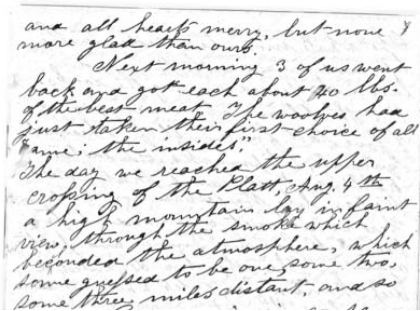 and all hearts merry, but none
more glad than ours.
Next morning 3 of us went
back and got each about 40 lbs.
of the best meat. The woolves had
just taken their first choice of all
"ame; the insides"
The day we reached the upper
crossing of the Platt, Aug. 4th
a high mountain lay in faint
view, through the smoke which
the atmosphere, which
some guessed to be one, some two,
some three miles distant, and so